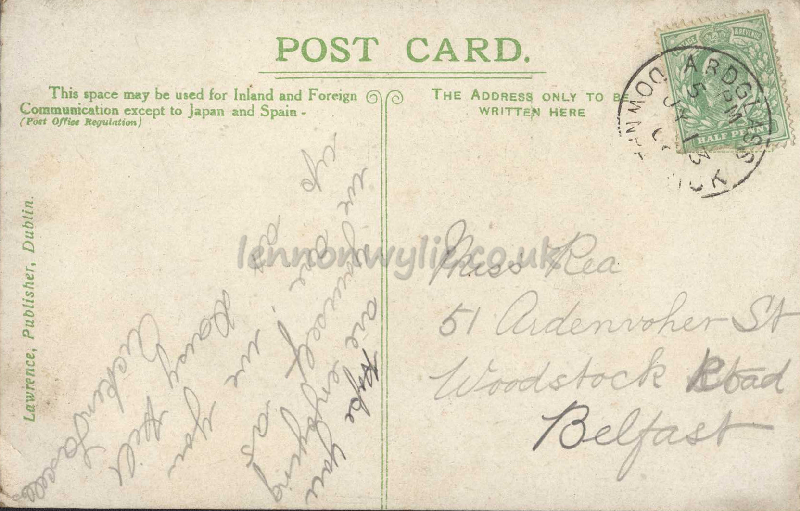 POST CARD.
This space may be used for Inland and Foreign
Communication except to Japan and Spain -
(Post Office Regulation)
THE ADDRESS ONLY TO BE
WRITTEN HERE
HALF PE
ARDGLASS
5 PM
13
Lawrence, Publisher, Dublin.
Hope you
are enjoying
yourself as
we are!
Daisy Hill
lennonwylie.co.uk
Miss Rea
51 Ardenvoher St
Woodstock Road
Belfast